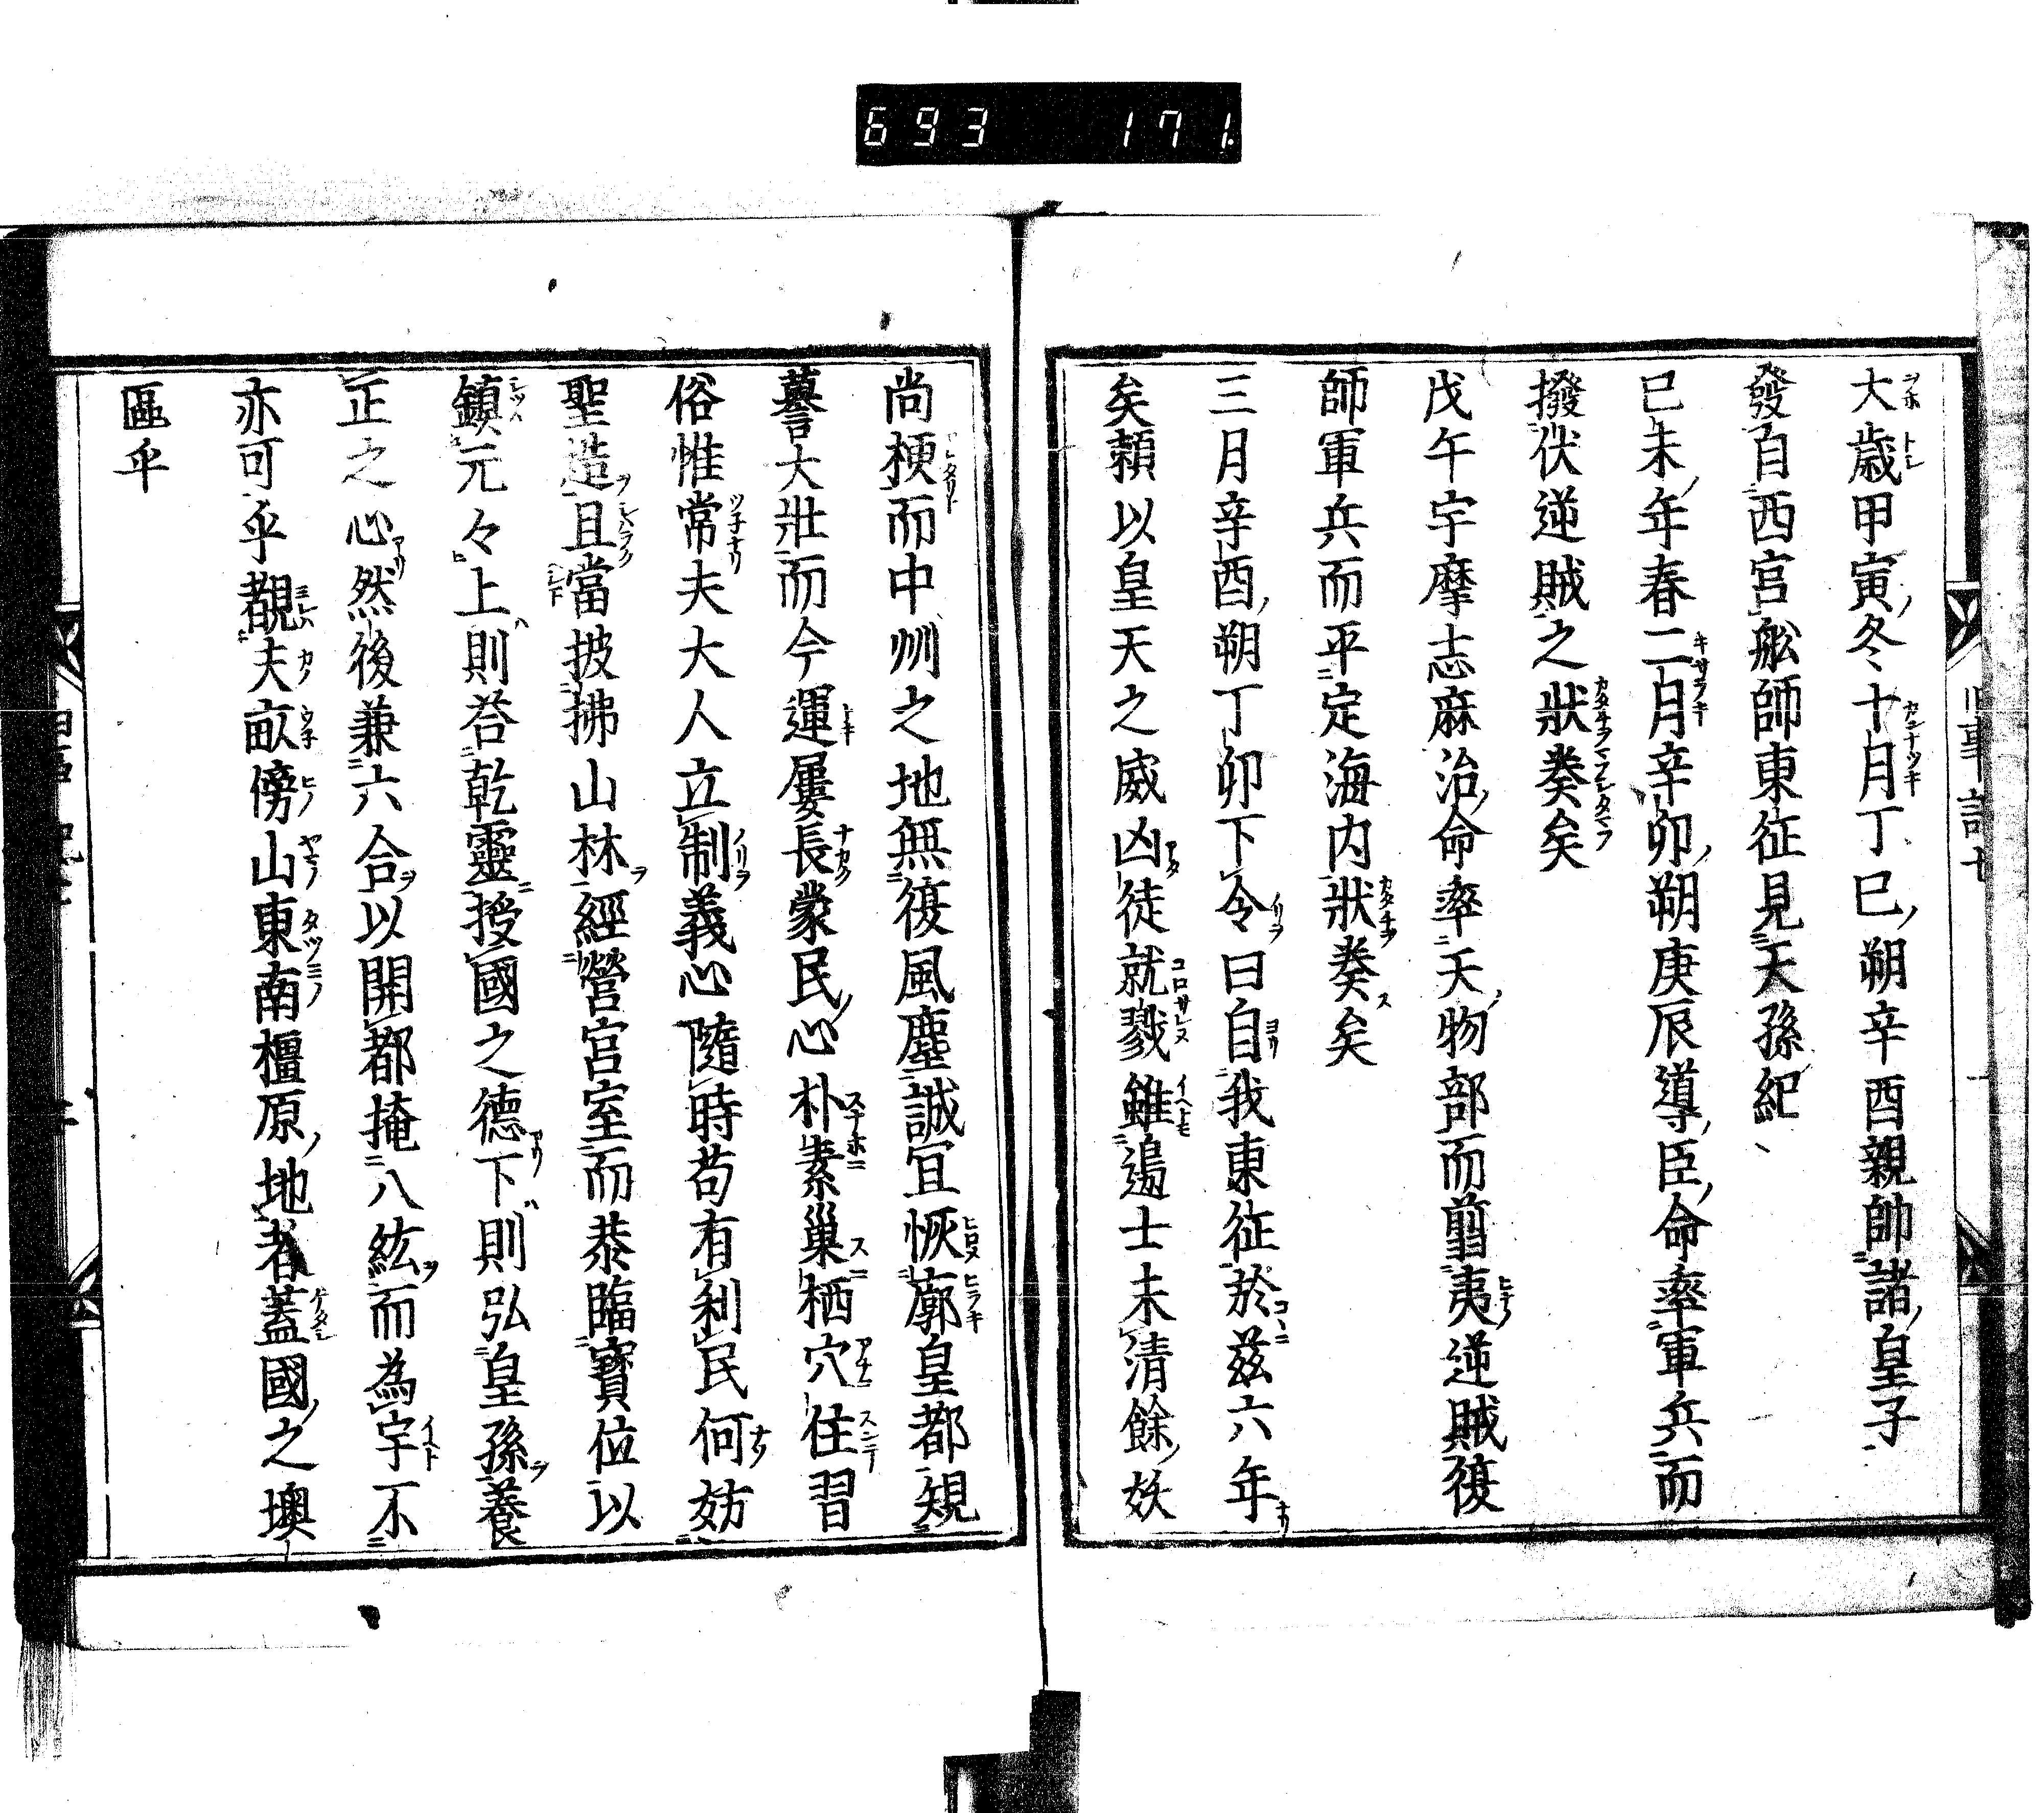 693 171.
大歳甲寅冬十月丁巳朔辛酉親帥諸皇子
發自西宮舩師東征見天孫紀
已未年春二月辛卯朔庚辰導臣命率軍兵而
撥伏逆賊之狀奏矣
戊午宇摩志麻治命率天物部而翦夷逆賊復
師軍兵而平定海内狀奏矣
三月辛酉朔丁卯下令曰自我東征於茲六年
矣頼以皇天之威凶徒就戮雖邉士未清餘妖
尚梗而中州之地無復風塵誠宜恢廓皇都規
摹大壯而今運屢長蒙民心朴素巢栖穴住習
俗惟常夫大人立制義心隨時苟有利民何妨
聖造且當披拂山林經營宮室而恭臨寶位以
鎮元々上則荅乾靈授國之德下則弘皇孫養
正之心然後兼六合以開都掩八紘而為宇不
亦可乎觀夫畝傍山東南橿原地者蓋國之墺
區乎